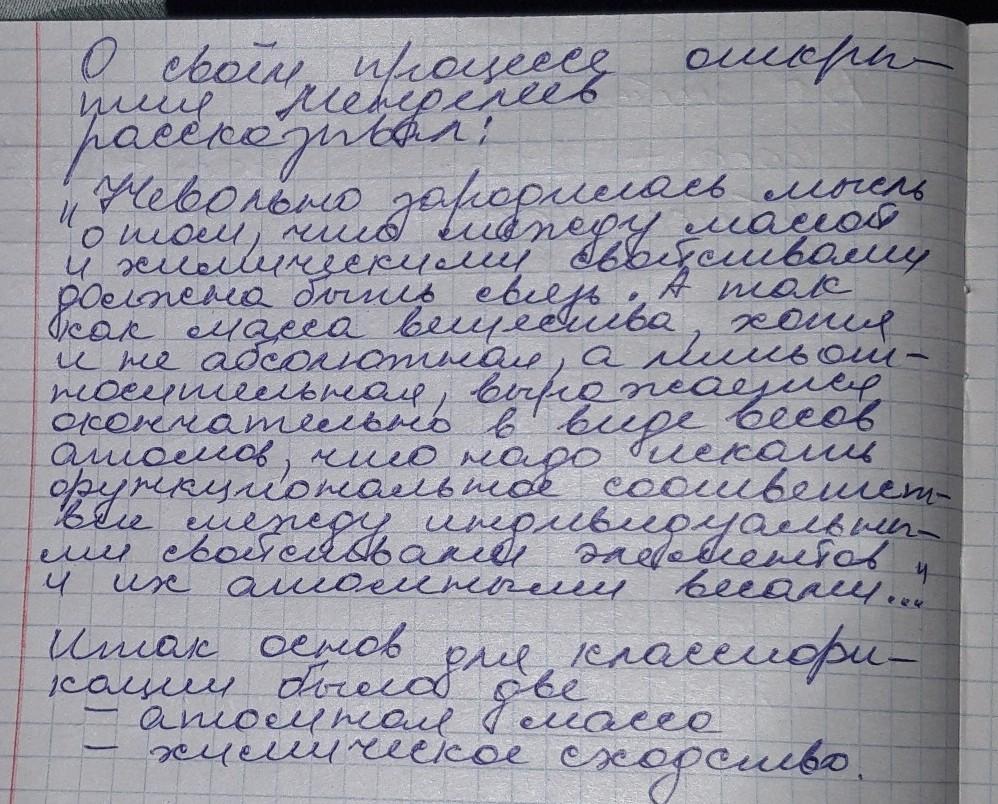 О своём процессе откры-
тия Менделеев
рассказывал:
"Невольно зародилась мысль
о том, что между массой
и химическими свойствами
должна быть связь. А так
как масса вещества, хотя
и не абсолютная, а лишь от-
носительная, выражается
окончательно в виде весов
атомов, что надо искать
функциональное соответст-
вие между индивидуальны-
ми свойствами элементов
и их атомными весами..."
Итак основ для классифи-
кации было две
- атомная масса
- химическое сходство.